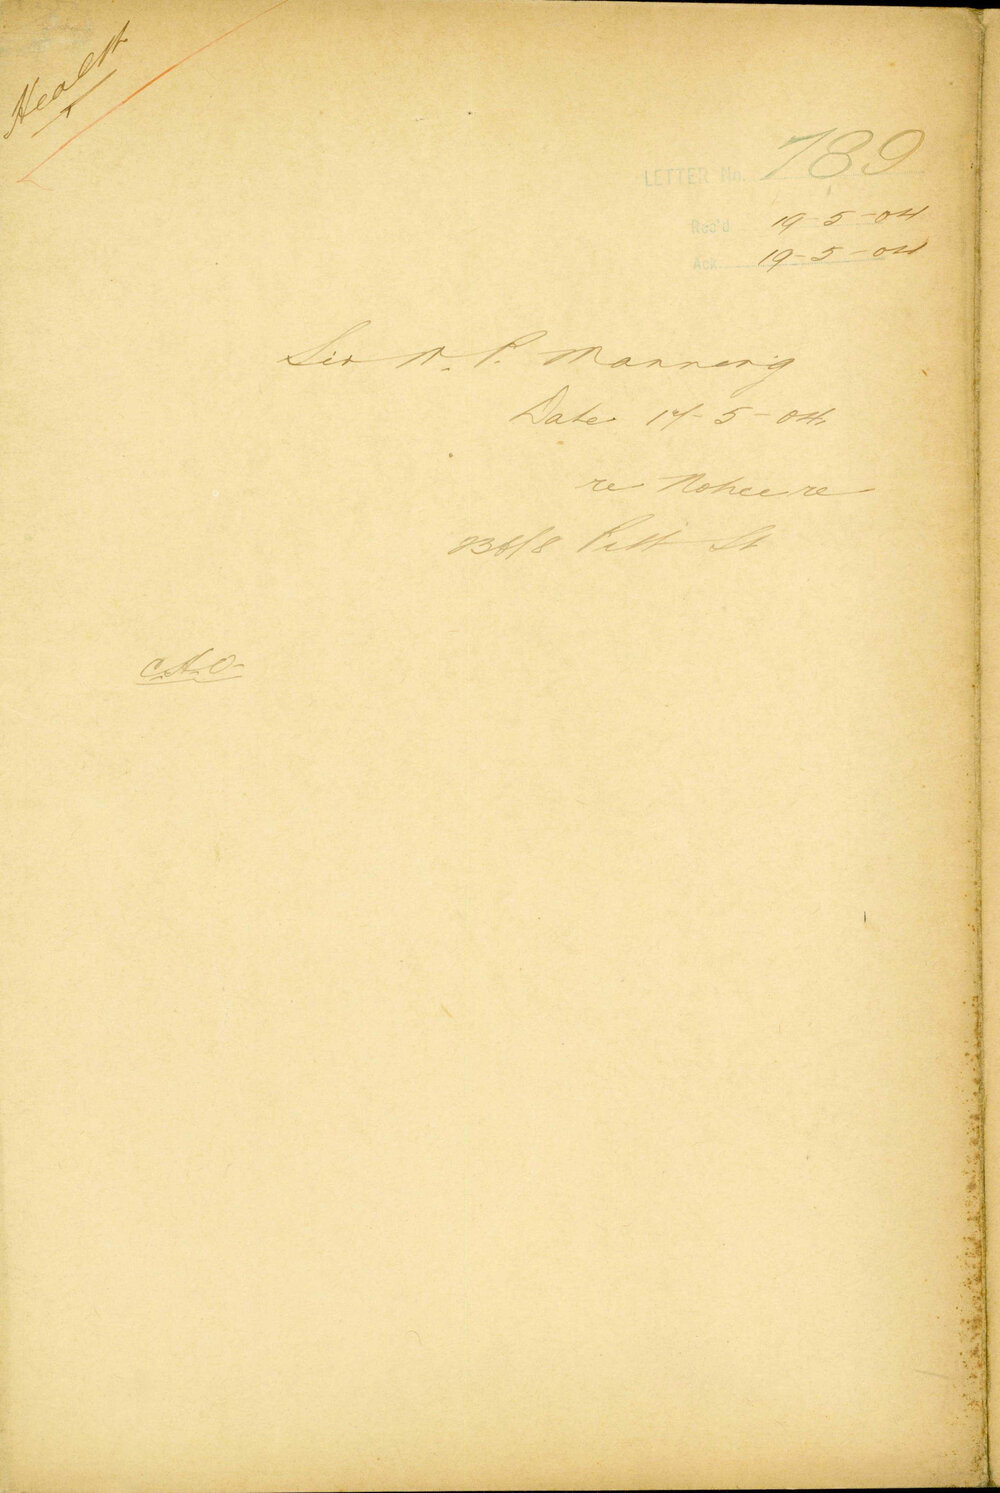 Health
LETTER No. 789
Rec'd 19-5-04
Ack. 19-5-04
Sir W. P. Manning
Date 17-5-04
re Notice re
Pitt St